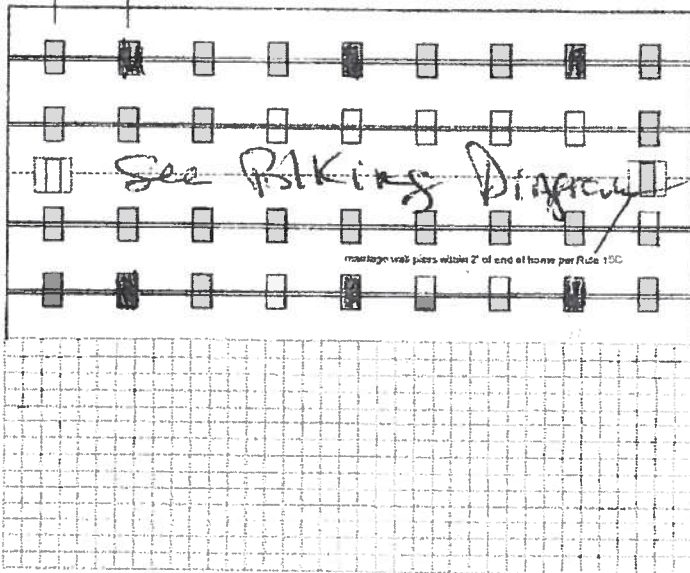 See Blking Diagram
marriage wall piers within 2' of end of home per Rule 15C